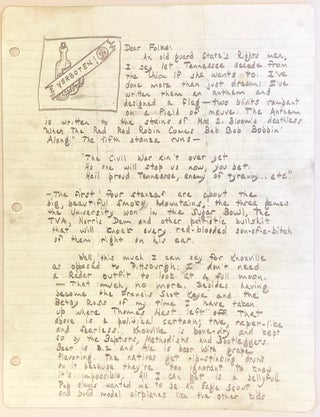 VERBOTEN!
Dear Folks:
An old guard State's Rights man,
I say let Tennessee secede from
the Union if she wants to. I've
done more than just dream; I've
written them an anthem and
designed a flag — two bluits rampant
on a field of mauve. The Anthem
is written to the strains of Moe Z. Bloom's deathless
"When The Red Red Robin Comes Bob Bob Bobbin'
Along." The fifth stanza runs—
"The Civil War Ain't over yet
No one will stop us now, you bet.
Hail proud Tennessee, enemy of tyranny... etc"
—The first four stanzas are about the
big, beautiful Smoky Mountains, the three games
the University won in the Sugar Bowl, The
TVA, Norris Dam and other patriotic bullshit
that will knock every red-blooded son-of-a-bitch
of them right on his ear.
Well, this much I can say for Knoxville
as opposed to Pittsburgh: I don't need
a Radar outfit to look at a full moon.
— That much, no more. Besides having
become the Francis Scot Kaye and the
Betsy Ross of my time I have taken
up where Thomas Nast left off. That
above is a political cartoon; true, rapier-like
and fearless. Knoxville is bone-dry and kept
so by the Baptists, Methodists and Bootleggers.
Beer is 3.2 and Ale is beer with grape
flavoring. The natives get rip-stinking drunk
on it because they're too ignorant to know
it's impossible. All I can get is a bellyfull.
Pop always wanted me to be an Eagle Scout
and build model airplanes like the other kids